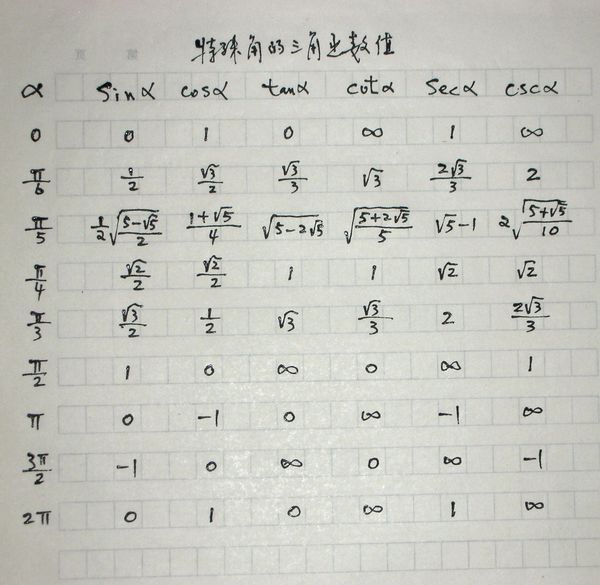 特殊角的三角函数值
α sinα cosα tanα cotα secα cscα
0 0 1 0 ∞ 1 ∞
π/6 1/2 √3/2 √3/3 √3 2√3/3 2
π/5 1/2√((5-√5)/2) (1+√5)/4 √(5-2√5) √((5+2√5)/5) √5-1 2√((5+√5)/10)
π/4 √2/2 √2/2 1 1 √2 √2
π/3 √3/2 1/2 √3 √3/3 2 2√3/3
π/2 1 0 ∞ 0 ∞ 1
π 0 -1 0 ∞ -1 ∞
3π/2 -1 0 ∞ 0 ∞ -1
2π 0 1 0 ∞ 1 ∞